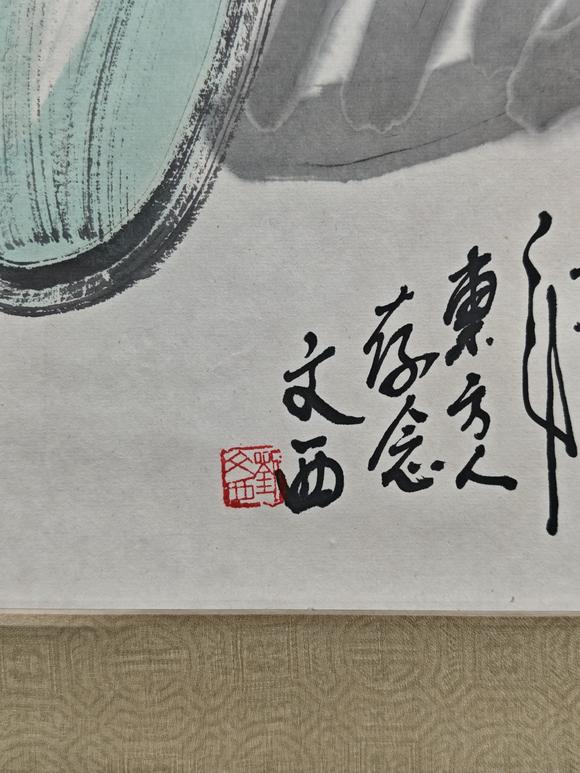 東方人
存念
文西
劉文西